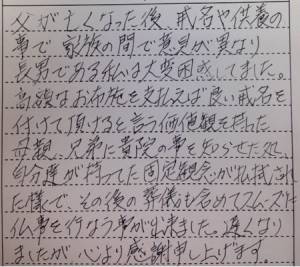 父が亡くなった後、戒名や供養の
事で家族の間で意見が異なり
長男である私は大変困惑してました。
高額なお布施を支払えば良い戒名を
付けて頂けると言う価値観を持った
母親、兄弟に貴院の事を知らせた処、
自分達が持ってた固定観念が払拭され
た様で、その後の葬儀も含めてスムーズに
仏事を行なう事が出来ました。遅くなり
ましたが心より感謝申し上げます。